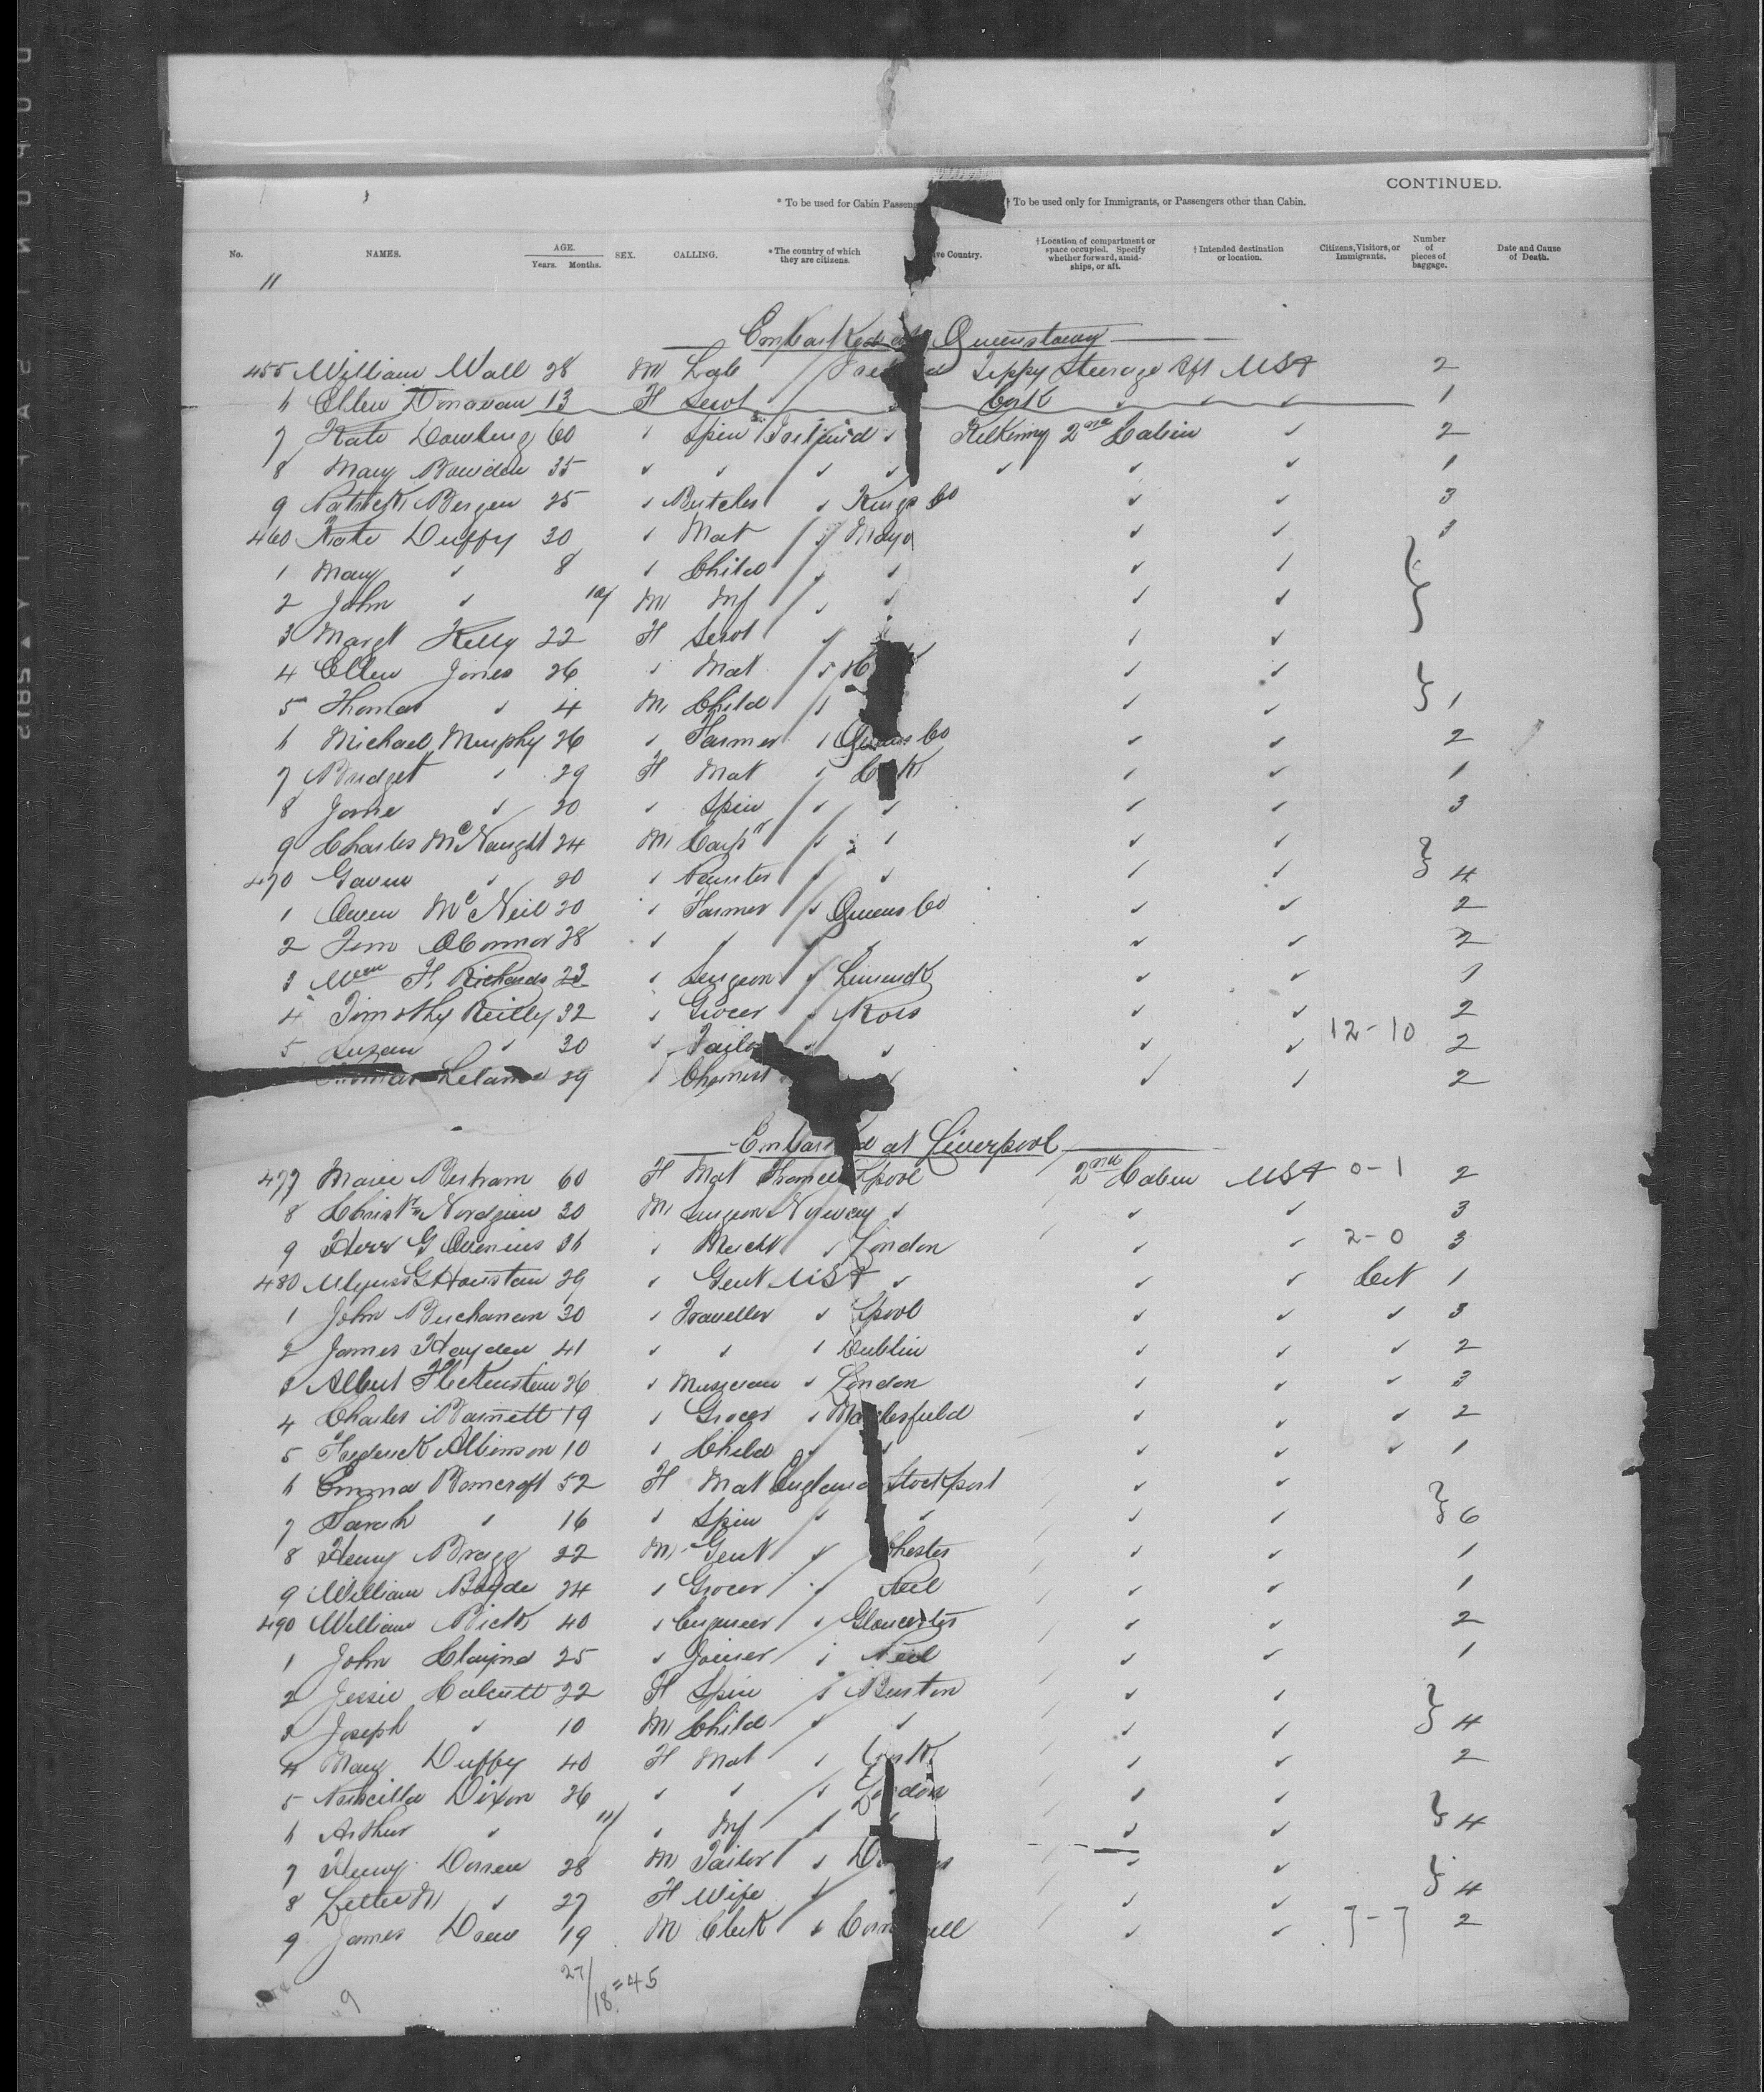 CONTINUED.
* To be used for Cabin Passeng † To be used only for Immigrants, or Passengers other than Cabin.
No. NAMES. AGE. Years. Months. SEX. CALLING. * The country of which they are citizens. ve Country. † Location of compartment or space occupied. Specify whether forward, amidships, or aft. † Intended destination or location. Citizens, Visitors, or Immigrants. Number of pieces of baggage. Date and Cause of Death.
11
Embarked at Queenstown
455 William Wall 28 M Lab Tippy Steerage Aft USA 2
6 Ellen Donavan 13 F Servt ✓ Cork ✓ ✓ ✓ 1
7 Kate Dowling 60 ✓ Spin Ireland ✓ Kilkenny 2nd Cabin ✓ 2
8 Mary Bowden 35 ✓ ✓ ✓ ✓ ✓ ✓ ✓ 1
9 Patrick Bergen 25 ✓ Butcher ✓ Kings Co ✓ ✓ 3
460 Kate Duffy 30 ✓ Mat ✓ Mayo ✓ ✓ 3
1 Mary ✓ 8 ✓ Child ✓ ✓ ✓ ✓
2 John ✓ M Inf ✓ ✓ ✓ ✓
3 Margt Kelly 22 F Servt ✓ ✓ ✓
4 Ellen Jones 26 ✓ Mat ✓ ✓ ✓
5 Thomas ✓ 4 M Child ✓ ✓ ✓ 1
6 Michael Murphy 26 ✓ Farmer ✓ Queens Co ✓ ✓ 2
7 Bridget ✓ 29 F Mat ✓ Cork ✓ ✓ 1
8 Jane ✓ 20 ✓ Spin ✓ ✓ ✓ ✓ 3
9 Charles McNaught 24 M Carpr ✓ ✓ ✓ ✓
470 Gavin ✓ 20 ✓ Painter ✓ ✓ ✓ ✓ 4
1 Owen McNeil 20 ✓ Farmer ✓ Queens Co ✓ ✓ 2
2 Jem OConnor 28 ✓ ✓ ✓ ✓ ✓ ✓ 2
3 Wm F. Richards 23 ✓ Surgeon ✓ Limerick ✓ ✓ 1
4 Timothy Reilly 32 ✓ Grocer ✓ Ros ✓ ✓ 2
5 Susan ✓ 30 ✓ Tailor ✓ ✓ ✓ ✓ 12-10 2
29 ✓ Chemist ✓ ✓ ✓ 2
Embarked at Liverpool
477 Marie Bertram 60 F Mat France Lpool 2nd Cabin USA 0-1 2
8 30 M Surgeon Norway ✓ ✓ ✓ 3
9 Herr G 36 ✓ Mercht ✓ London ✓ ✓ 2-0 3
480 Ulysses G Houston 29 ✓ Gent USA ✓ ✓ ✓ Cit 1
1 John Buchanan 30 ✓ Traveller ✓ Lpool ✓ ✓ ✓ 3
2 James Hayden 41 ✓ ✓ ✓ Dublin ✓ ✓ ✓ 2
3 Albert Fleckenstein 26 ✓ Musician ✓ London ✓ ✓ ✓ 3
4 Charles Barnett 19 ✓ Grocer ✓ Macclesfield ✓ ✓ ✓ 2
5 Frederick Albinson 10 ✓ Child ✓ ✓ ✓ ✓ ✓ 1
6 Emma Bancroft 52 F Mat England Stockport ✓ ✓
7 Sarah ✓ 16 ✓ Spin ✓ ✓ ✓ ✓ 6
8 Henry Bragg 22 M Gent ✓ Chester ✓ ✓ 1
9 William Boyde 24 ✓ Grocer ✓ Peel ✓ ✓ 1
490 William Bick 40 ✓ Engineer ✓ Gloucester ✓ ✓ 2
1 John 25 ✓ Joiner ✓ Peel ✓ ✓ 1
2 Jessie Calcutt 22 F Spin ✓ Burton ✓ ✓
3 Joseph ✓ 10 M Child ✓ ✓ ✓ ✓ 4
4 Mary Duffy 40 F Mat ✓ Cork ✓ ✓ 2
5 Priscilla Dixon 26 ✓ ✓ ✓ London ✓ ✓
6 Arthur ✓ 11/ ✓ Inf ✓ ✓ ✓ 4
7 Henry 28 M Tailor ✓ ✓ ✓
8 ✓ 27 F Wife ✓ ✓ ✓ 4
9 James Drew 19 M Clerk ✓ Cornwall ✓ ✓ 7-7 2
27/18=45
9